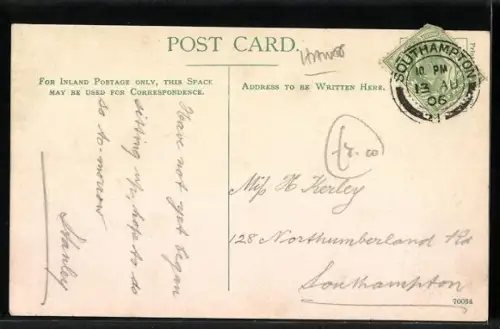 POST CARD.
HANTS
FOR INLAND POSTAGE ONLY, THIS SPACE
MAY BE USED FOR CORRESPONDENCE.
ADDRESS TO BE WRITTEN HERE.
SOUTHAMPTON
10. PM
13 AU
06
21
Have not yet began
sitting up, hope to do
so to-morrow
Stanley
£3.00
Miss H Kerley
128 Northumberland Rd
Southampton
70054